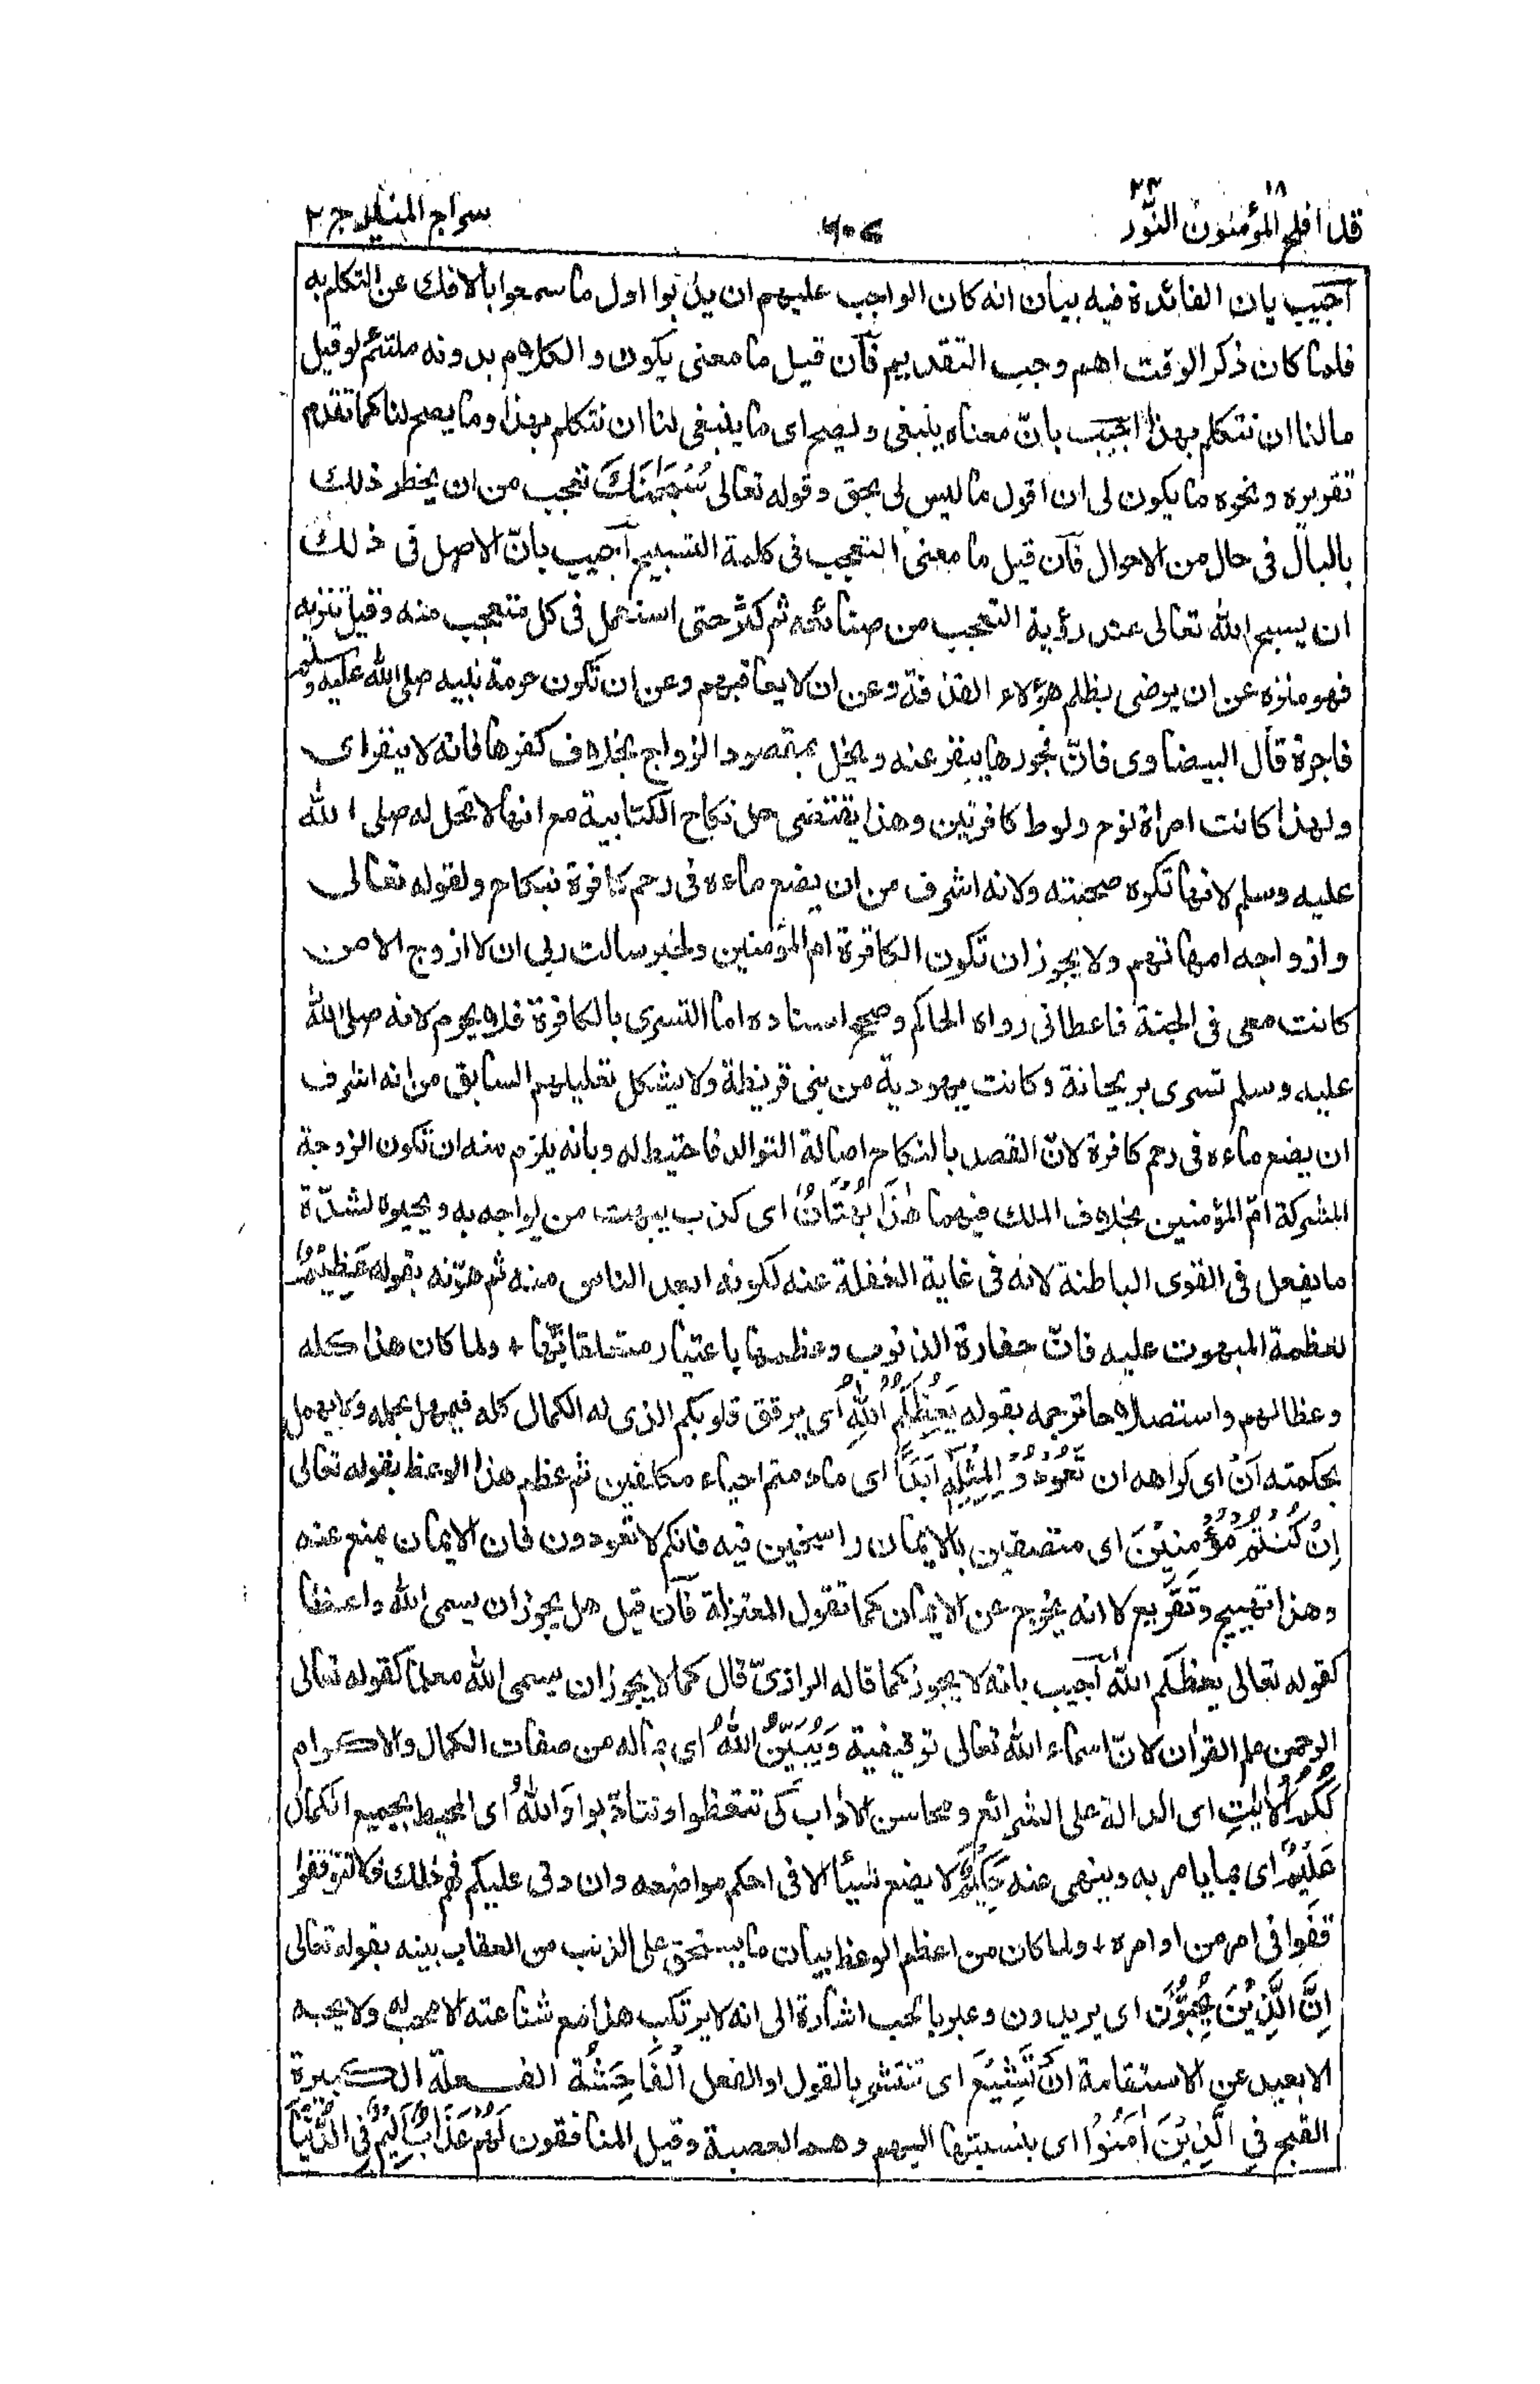 قد افلح المؤمنون ١٨ النّور ٢٤
٦٠٤
سراج المنير ج ٢
اجيب بان الفائدة فيه بيان انه كان الواجب عليهم ان يذبوا اول ما سمعوا بالافك عن التكلم به
فلما كان ذكر الوقت اهم وجب التقديم فآن قيل ما معنى يكون والكلام بدونه ملتئم لو قيل
ما لنا ان نتكلم بهذا اجيب بانّ معناه ينبغى ويصح اى ما ينبغى لنا ان نتكلم بهذا وما يصح لنا كما تقدم
تقريره ونحوه ما يكون لى ان اقول ما ليس لى بحق وقوله تعالى سُبْحٰنَكَ تعجب من ان يخطر ذلك
بالبال فى حال من الاحوال فآن قيل ما معنى التعجب فى كلمة التسبيح آجيب بانّ الاصل فى ذلك
ان يسبح الله تعالى عند رؤية التعجب من صنائعه ثم كثر حتى استعمل فى كل متعجب منه وقيل تنزيه
فهو منزه عن ان يرضى بظلم هؤلاء القذفة وعن ان لا يعاقبهم وعن ان تكون حرمة نبيه صلى الله عليه وسلم
فاجرة قال البيضاوى فانّ فجورها ينفر عنه ويخل بمقصود الزواج بخلاف كفرها فانه لا ينفر اى
ولهذا كانت امراة نوح ولوط كافرتين وهذا يقتضى حل نكاح الكتابية مع انها لا تحل له صلى الله
عليه وسلم لانها تكره صحبته ولانه اشرف من ان يضع ماءه فى رحم كافرة بنكاح ولقوله تعالى
وازواجه امهاتهم ولا يجوز ان تكون الكافرة ام المؤمنين ولخبر سالت ربى ان لا ازوج الا من
كانت معى فى الجنة فاعطانى رواه الحاكم وصحح اسناده اما التسرى بالكافرة فلا يحرم لانه صلى الله
عليه وسلم تسرى بريحانة وكانت يهودية من بنى قريظة ولا يشكل تعليلهم السابق من انه اشرف
ان يضع ماءه فى رحم كافرة لانّ القصد بالنكاح اصالة التوالد فاحتيط له وبانه يلزم منه ان تكون الزوجة
المشركة امّ المؤمنين بخلاف الملك فيهما هٰذَا بُهْتَانٌ اى كذب يبهت من يواجه به ويحيره لشدّة
ما يفعل فى القوى الباطنة لانه فى غاية الغفلة عنه لكونه ابعد الناس منه ثم هوّنه بقوله عَظِيْمٌ
لعظمة المبهوت عليه فانّ حقارة الذنوب وعظمها باعتبار متعلقاتها + ولما كان هذا كله
وعظا لهم واستصلاحا ترجمه بقوله يَعِظُكُمُ اللّٰهُ اى يرقق قلوبكم الذى له الكمال كله فيمهل بحلمه ولا يهمل
بحكمته اَنْ اى كراهه ان تَعُوْدُوْا لِمِثْلِهٖ اَبَدًا اى ما دمتم احياء مكلفين ثم عظم هذا الوعظ بقوله تعالى
اِنْ كُنْتُمْ مُؤْمِنِيْنَ اى متصفين بالايمان راسخين فيه فانكم لا تعودون فان الايمان يمنع عنه
وهذا تهييج وتقريع لا انه يخرج عن الايمان كما تقول المعتزلة فآن قيل هل يجوز ان يسمى الله واعظا
كقوله تعالى يعظكم الله آجيب بانه لا يجوز كما قاله الرازىّ قال كما لا يجوز ان يسمى الله معلما كقوله تعالى
الرحمن علم القرآن لانّ اسماء الله تعالى توقيفية وَيُبَيِّنُ اللّٰهُ اى بما له من صفات الكمال والاكرام
لَكُمُ الْاٰيٰتِ اى الدالة على الشرائع ومحاسن الآداب كى تتعظوا وتتادّبوا وَاللّٰهُ اى المحيط بجميع الكمال
عَلِيْمٌ اى بما يامر به وينهى عنه حَكِيْمٌ لا يضع شيئا الا فى احكم مواضعه وان دق عليكم فهم ذلك فلا تتوقفوا
قفوا فى امر من اوامره + ولما كان من اعظم الوعظ بيان ما يستحق على الذنب من العقاب بينه بقوله تعالى
اِنَّ الَّذِيْنَ يُحِبُّوْنَ اى يريدون وعبر بالحب اشارة الى انه لا يرتكب هذا مع شناعته الا محب له ولا يحبه
الا بعيد عن الاستقامة اَنْ تَشِيْعَ اى تنتشر بالقول او الفعل الْفَاحِشَةُ الفعلة الكبيرة
القبح فِى الَّذِيْنَ اٰمَنُوْا اى بنسبتها اليهم وهم العصبة وقيل المنافقون لَهُمْ عَذَابٌ اَلِيْمٌ فِى الدُّنْيَا